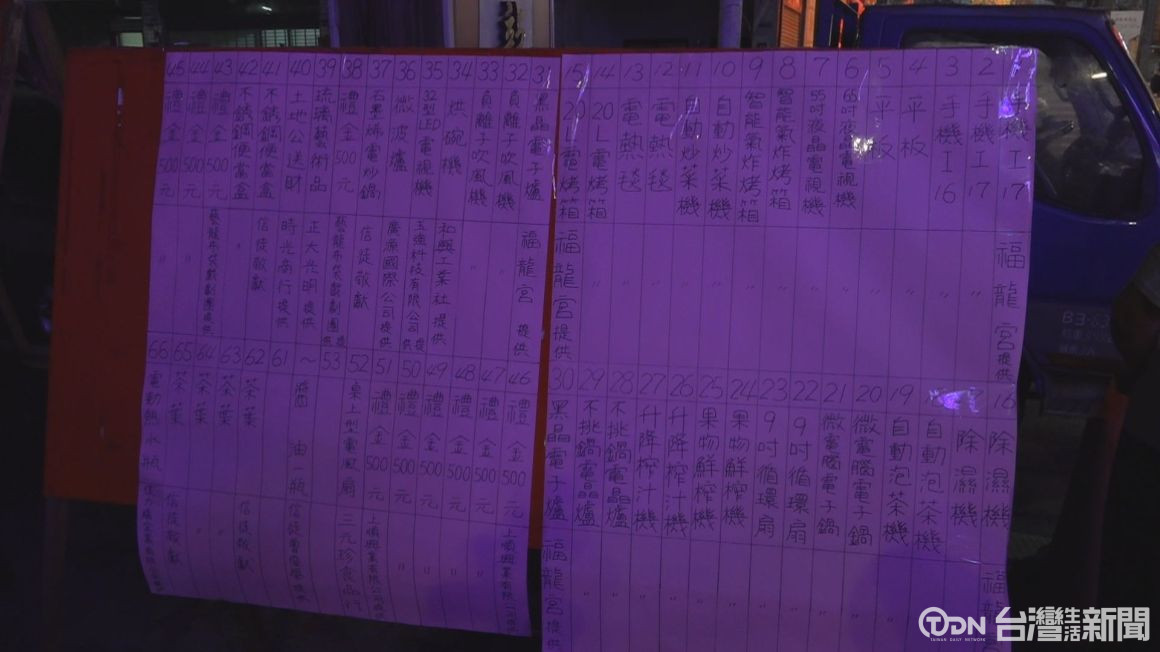 手機I17
福龍宮提供
2 手機I17
〃
3 手機I16
〃
4 平板
〃
5 平板
〃
6 65吋液晶電視機
〃
7 55吋液晶電視機
〃
8 智能氣炸烤箱
〃
9 智能氣炸烤箱
〃
10 自動炒菜機
〃
11 自動炒菜機
〃
12 電熱毯
〃
13 電熱毯
〃
14 20L電烤箱
〃
15 20L電烤箱
福龍宮提供
16 除濕機
福龍
除濕機
自動泡茶機
19 自動泡茶機
20 微電腦電子鍋
21 微電腦電子鍋
〃
22 9吋循環扇
〃
23 9吋循環扇
〃
24 果物鮮榨機
〃
25 果物鮮榨機
〃
26 升降榨汁機
〃
27 升降榨汁機
〃
28 不挑鍋電晶爐
〃
29 不挑鍋電晶爐
〃
30 黑晶電子爐
福龍宮提供
31 黑晶電子爐
福龍宮提供
32 負離子吹風機
〃
33 負離子吹風機
〃
34 烘碗機
和興工業社提供
35 32型LED電視機
玉進科技有限公司提供
36 微波爐
廣源國際公司提供
37 石墨烯電炒鍋
信徒敬獻
38 禮金500元
藝龍布袋戲劇團提供
39 琉璃藝術品
正大光明提供
40 土地公送財
時光商行提供
41 不銹鋼便當盒
信徒敬獻
42 不銹鋼便當盒
〃
43 禮金500元
藝龍布袋戲劇團提供
44 禮金500元
〃
45 禮金500元
〃
46 禮金500元
上順興業有限公司
47 禮金500元
〃
48 禮金500元
〃
49 禮金500元
〃
50 禮金500元
〃
51 禮金500元
上順興業有限公司
52 桌上型電風扇
三元珍食品行
53～61 醬油一瓶
信徒
62 茶葉
信徒敬獻
63 茶葉
〃
64 茶葉
〃
65 茶葉
信徒敬獻
66 電動熱水瓶
B3-6
TDN 台灣生活新聞
TAIWAN DAILY NETWORK